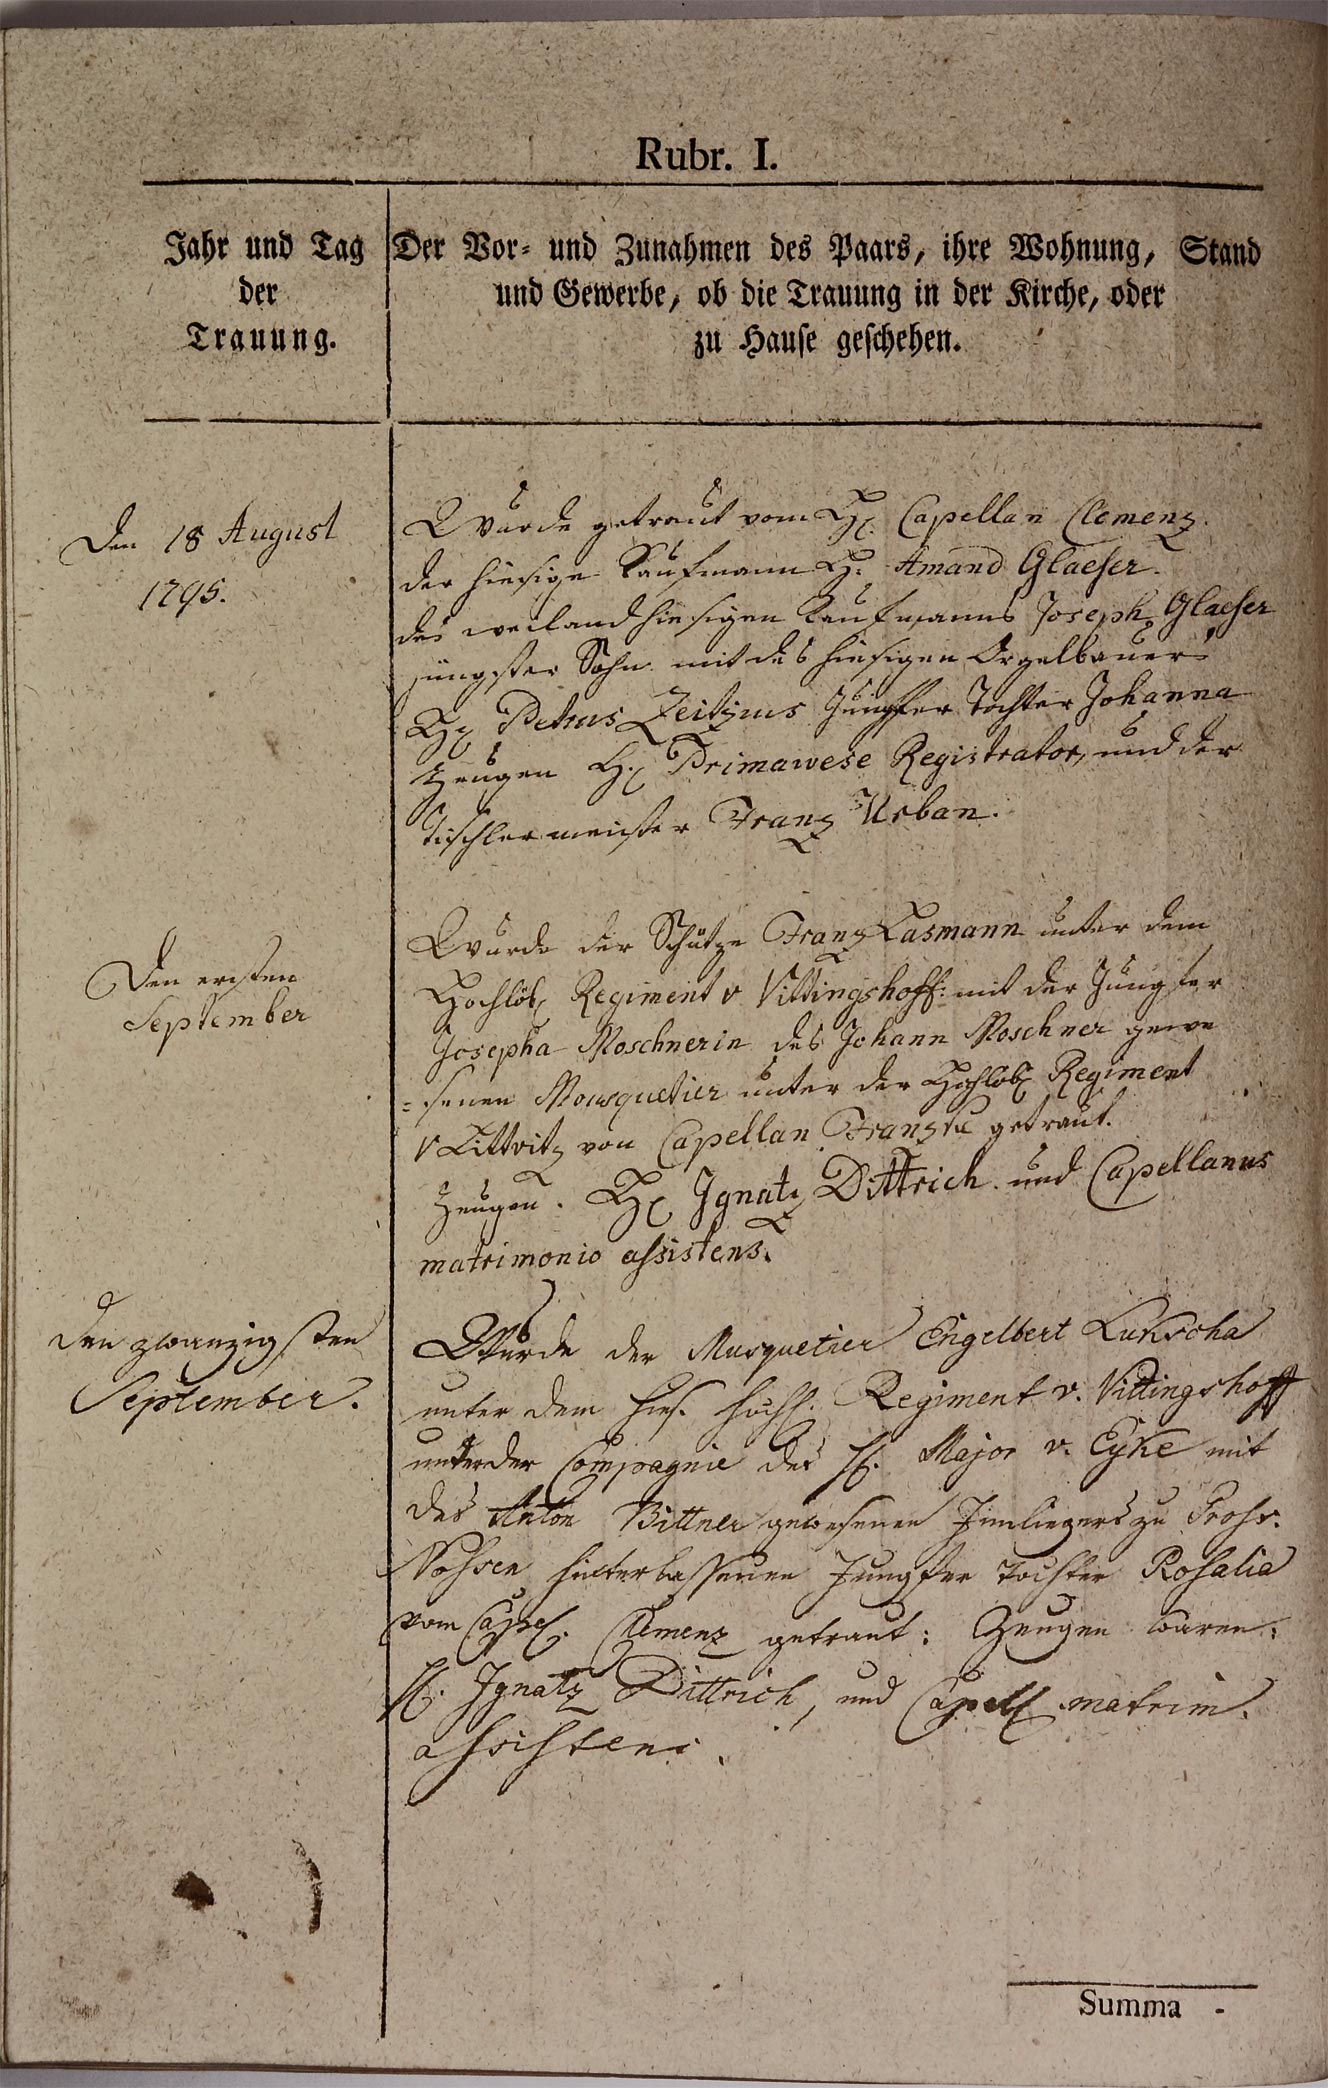 Rubr. I.
Jahr und Tag
der
Trauung.
Der Vor- und Zunahmen des Paars, ihre Wohnung, Stand
und Gewerbe, ob die Trauung in der Kirche, oder
zu Hause geschehen.
Den 18 August
1795.
Wurde getraut vom H. Capellan Clemenz.
der hiesige Kaufmann H. Amand Glaeser.
des weiland hiesigen Kaufmanns Joseph Glaeser
jüngster Sohn mit des hiesigen Orgelbauers
H. Petrus Zeitzius Jungfer Tochter Johanna
Zeugen H. Primawese Registrator, und der
Tischlermeister Franz Urban.
Den ersten
September
Wurde der Schütze Franz Kasmann unter dem
Hochlöb. Regiment v Vittingshoff: mit der Jungfer
Josepha Moschnerin des Johann Moschner gewe
=senen Mousquetier unter der Hochlöb. Regiment
v Zittvitz von Capellan getraut.
Zeugen. H. Ignatz Dittrich und Capellanus
matrimonio assistens.
Den zwanzigsten
September.
Wurde der Musquetier Engelbert Lukscha
unter dem hies. hochl. Regiment v. Vittingshoff
unter der Compagnie des H. Major v. Eyke mit
des Anton Bittner gewesenen Innliegers zu Groß.
Nossen hinterlassenen Jungfer Tochter Rosalia
vom Capel. Clemenz getraut: Zeugen waren:
H. Ignatz Dittrich, und Capell. matrim.
assistens.
Summa -